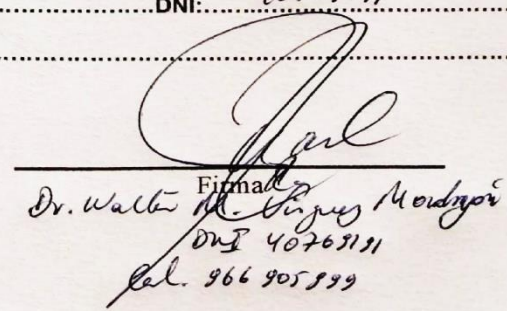 DNI:
Firma
Dr. Walter M.
DNI 40769191
Cel. 966 905 999